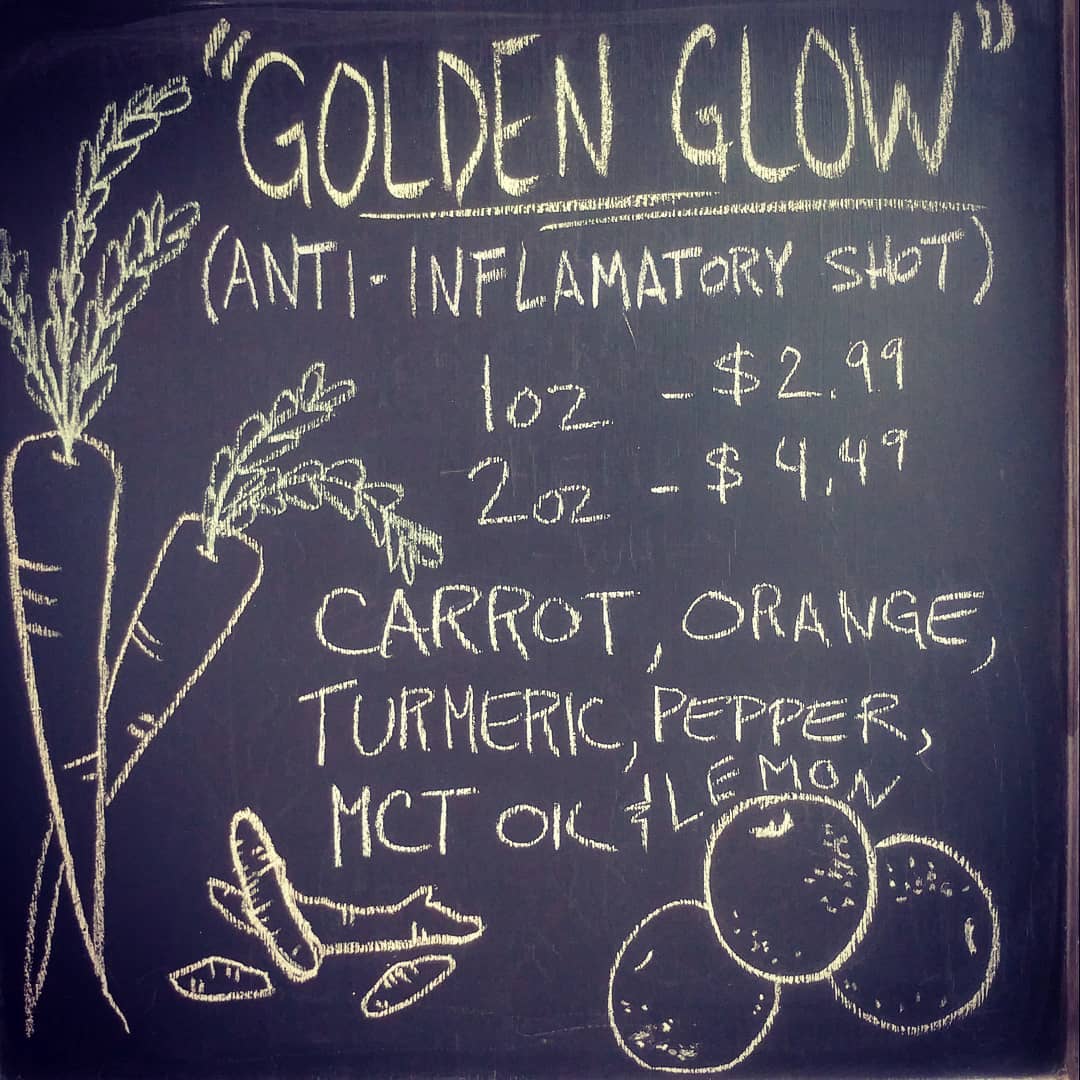 "GOLDEN GLOW"
(ANTI-INFLAMATORY SHOT)
1oz - $2.99
2oz - $4.49
CARROT, ORANGE,
TURMERIC, PEPPER,
MCT OIL & LEMON